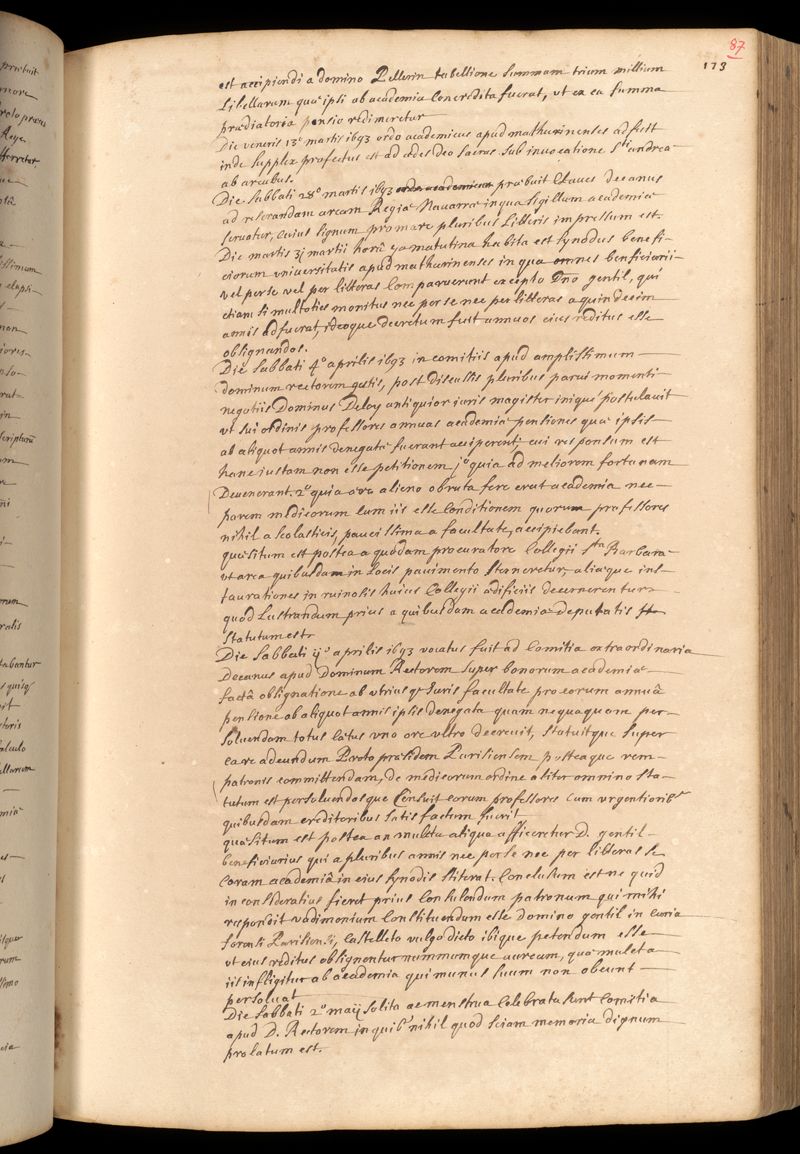 87
173
est accipiendi a domino Pellerin tabellione summam trium millium
Libellarum quae ipsi ab academia Concredita fuerat, ut ex ea summa
praediatoria pensio redimeretur
Die veneris 13a martis 1693 ordo academicus apud mathurinenses adfuit
inde supplex profectus est ad aedes deo sacras sub invocatione Sti andreae
ab arcubus.
Die Sabbati 28o martis 1693 praebuit claves decanus
ad reserandam arcam Regiae Navarrae in qua sigillum academiae
servatur, cuius signum pro more pluribus Litteris impressum est.
Die martis 31 martii horâ matutina habita est synodus benefi-
ciorum universitatis apud mathurinenses in qua omnes benficiarii
vel per se vel per litteras Comparuerunt excepto Dno gentil, qui
etiam si multoties monitus nec per se nec per litteras a quindecim
annis adfuerat, ideoque decretum fuit annuos eius reditus esse
obsignandos.
Die Sabbati 4o aprilis 1693 in comitiis apud amplissimum
dominum rectorem gestis, post discussis pluribus parui momenti
negotiis Dominus Deloy antiquior iuris magister iniquè postulavit
ut sui ordinis professores annuas academiae pensiones quae ipsis
ab aliquot annis denegatae fuerant acciperent; cui responsum est
hanc iustam non esse petitionem 1o quia ad meliorem fortunam
Devenerant. 2o quia aere alieno obruta fere erat academia nec
parem medicorum cum iis esse Conditionem quorum professores
nihil a scolasticis, paucissima a facultate, accipiebant.
quaesitum est postea a quodam procuratore Collegii Stae Barbarae
ut area quibusdam in Locis pauimento sterneretur, aliaque ins-
taurationes in ruinosis huius Collegii aedificiis decernerentur
quod Lustrandum prius a quibusdam academiae deputatis
statutum est
Die Sabbati 11o aprilis 1693 vocatus fuit ad Comitia extraordinaria
Decanus apud Dominum Rectorem super bonorum academiae
factâ obsignatione ab utriusq Iuris facultate pro eorum annuâ
pensione ab aliquot annis ipsis denegata quam nequaquam per-
soluendam totus caetus uno ore ultro decrevit, statuitque super
ea re adeundum Protopraesidem Parisiensem posteaque rem
patronis committendam, de medicorum ordine aliter omnino sta-
tutum est persoluendosque Censuit eorum professores Cum urgentiorib
quibusdam creditoribus satis factum fuerit
quaesitum est postea an mulcta aliqua afficeretur D. gentil
beneficiarius qui a pluribus annis nec per se nec per litteras se
Coram academiâ in eius synodis stiterat. Conclusum est ne quid
in consideratius fieret prius Consulendum patronum qui mihi
respondit vadimonium Constituendum esse domino gentil in curia
forensi Parisiensi, Castelleto vulgo dicto ibique petendum esse
ut eius reditus obsignentur nummumque aureum, quae mulcta
iis infligitur ab academia qui munus suum non obeunt
persoluat
Die Sabbati 2o maij solita ac menstrua Celebrata sunt Comitia
apud D. Rectorem in quib nihil quod sciam memoria dignum
prolatum est.